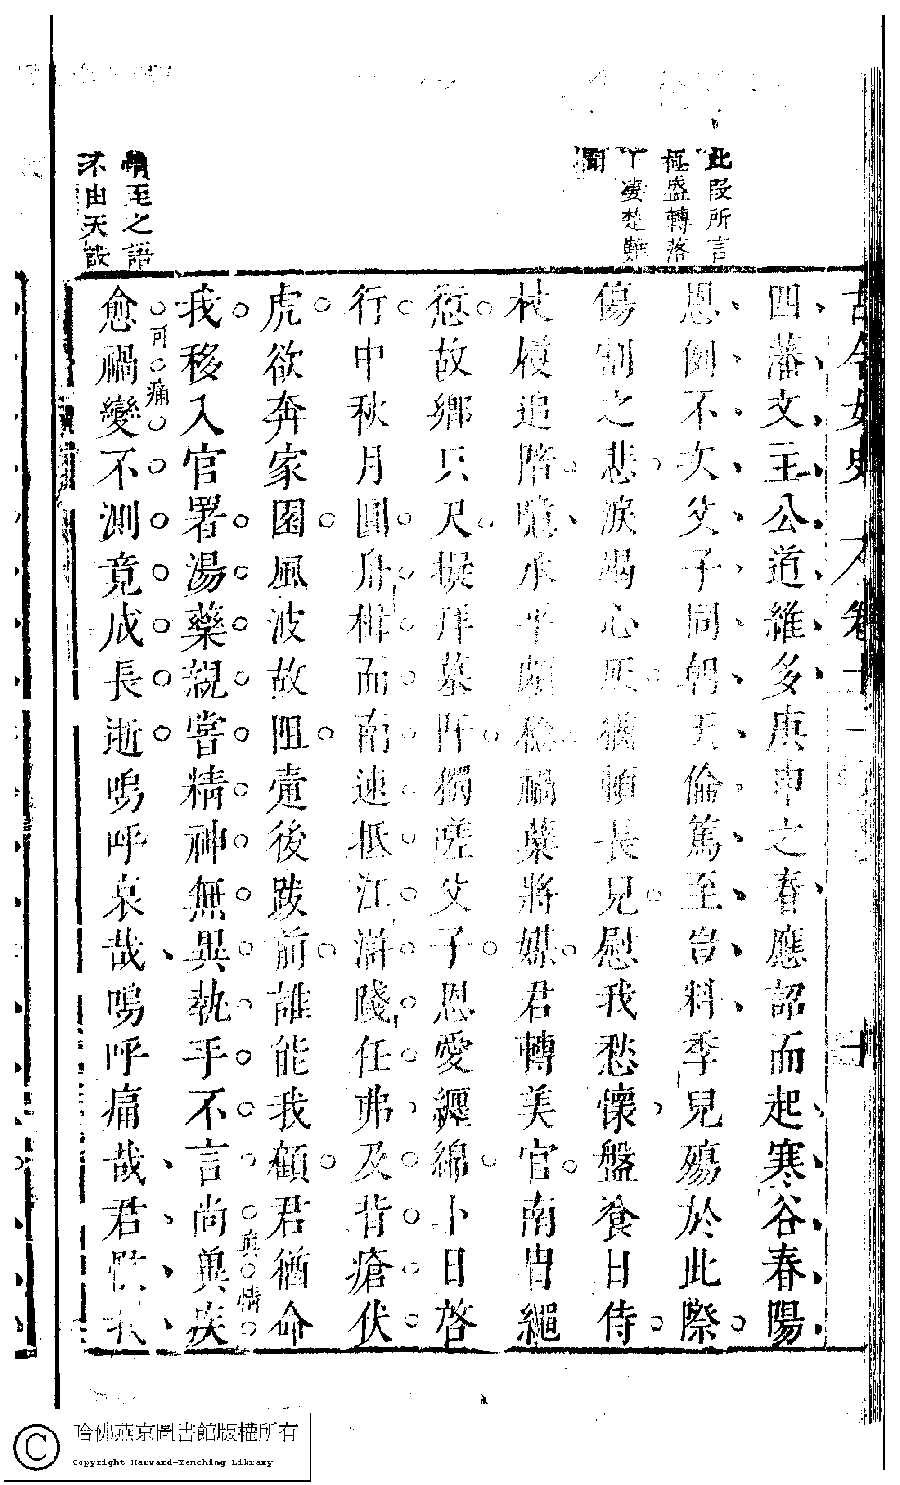 此叚所言
極盛轉落
丁凄楚難
聞
情至之語
不由天設
古今女史 卷十一 十
四藩文王公道維多庚申之春應詔而起寒谷春陽
恩倒不次父子同朝天倫篤至豈料季兒殤於此際
傷割之悲淚竭心灰頓長兄慰我愁懷盤飧日侍
杖履追陪承平禍藥將媒君轉美官南曹繩
愆故鄉只尺擬拜墓阡獨嗟父子恩愛纏綿卜日啓
行中秋月圓舟楫而南速抵江滸踐任弗及背瘡伏
虎欲奔家園風波故阻疐後跋前誰能我顧君猶命
我移入官署湯藥親嘗精神無異執手不言尚兾疾
真情
愈禍變不測竟成長逝嗚呼哀哉嗚呼痛哉君
可痛
哈佛燕京圖書館版權所有
Copyright Harvard-Yenching Library